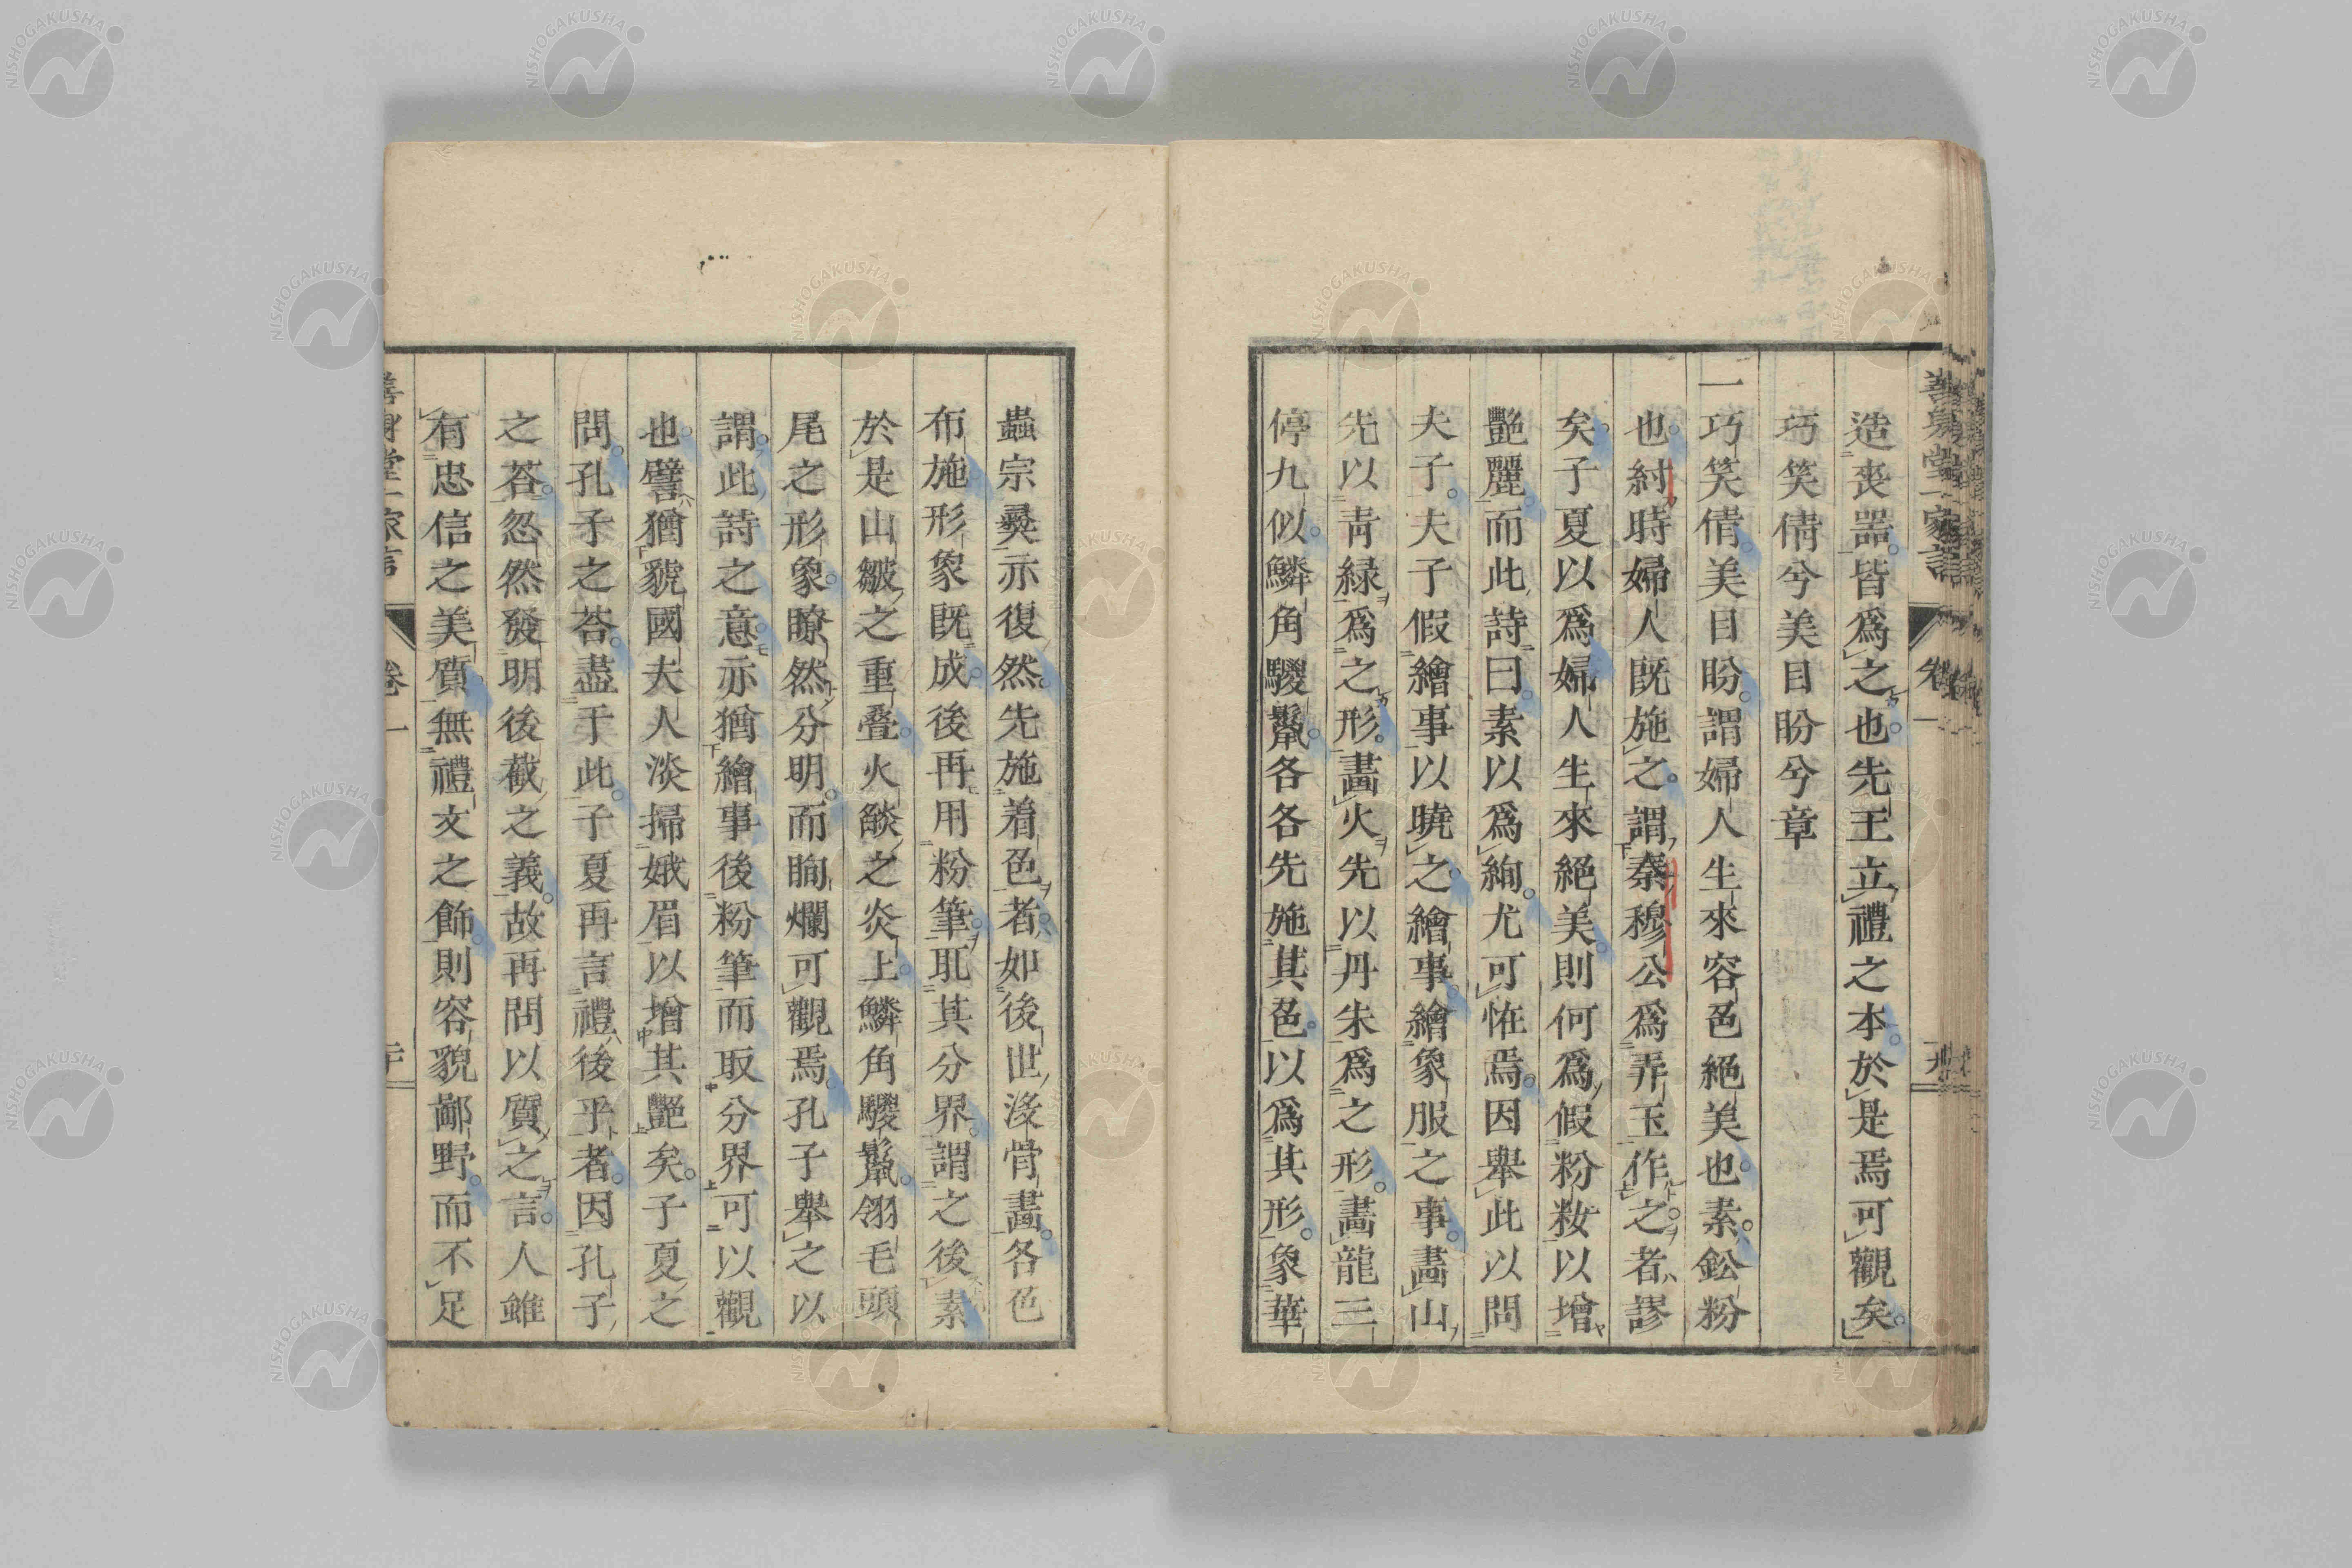 造喪器皆爲之也先王立禮之本於是焉可觀矣
巧笑倩兮美目盼兮章
一巧笑倩美目盼謂婦人生來容色絕美也素鈆粉
也紂時婦人既施之謂秦穆公爲弄玉作之者謬
矣子夏以爲婦人生來絕美則何爲假粉妝以增
艷麗而此詩曰素以爲絢尤可恠焉因舉此以問
夫子夫子假繪事以曉之繪事繪象服之事畵山
先以青綠爲之形畵火先以丹朱爲之形畵龍三
停九似鱗角騣鬣各各先施其色以爲其形象華
蟲宗彝亦復然先施着色者如後世沒骨畵各色
布施形象既成後再用粉筆取其分界謂之後素
於是山皴之重疊火燄之炎上鱗角騣鬣翎毛頭
尾之形象瞭然分明而眴爛可觀焉孔子舉之以
謂此詩之意亦猶繪事後粉筆而取分界可以觀
也譬猶虢國夫人淡掃娥眉以增其艷矣子夏之
問孔子之荅盡于此子夏再言禮後乎者因孔子
之荅忽然發明後截之義故再問以質之言人雖
有忠信之美質無禮文之飾則容貌鄙野而不足
善身堂一家言 卷一
NISHOGAKUSHA